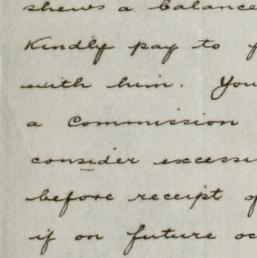 shews a balance
Kindly pay to
with him. You
a Commission
consider excessi
before receipt o
if on future oc